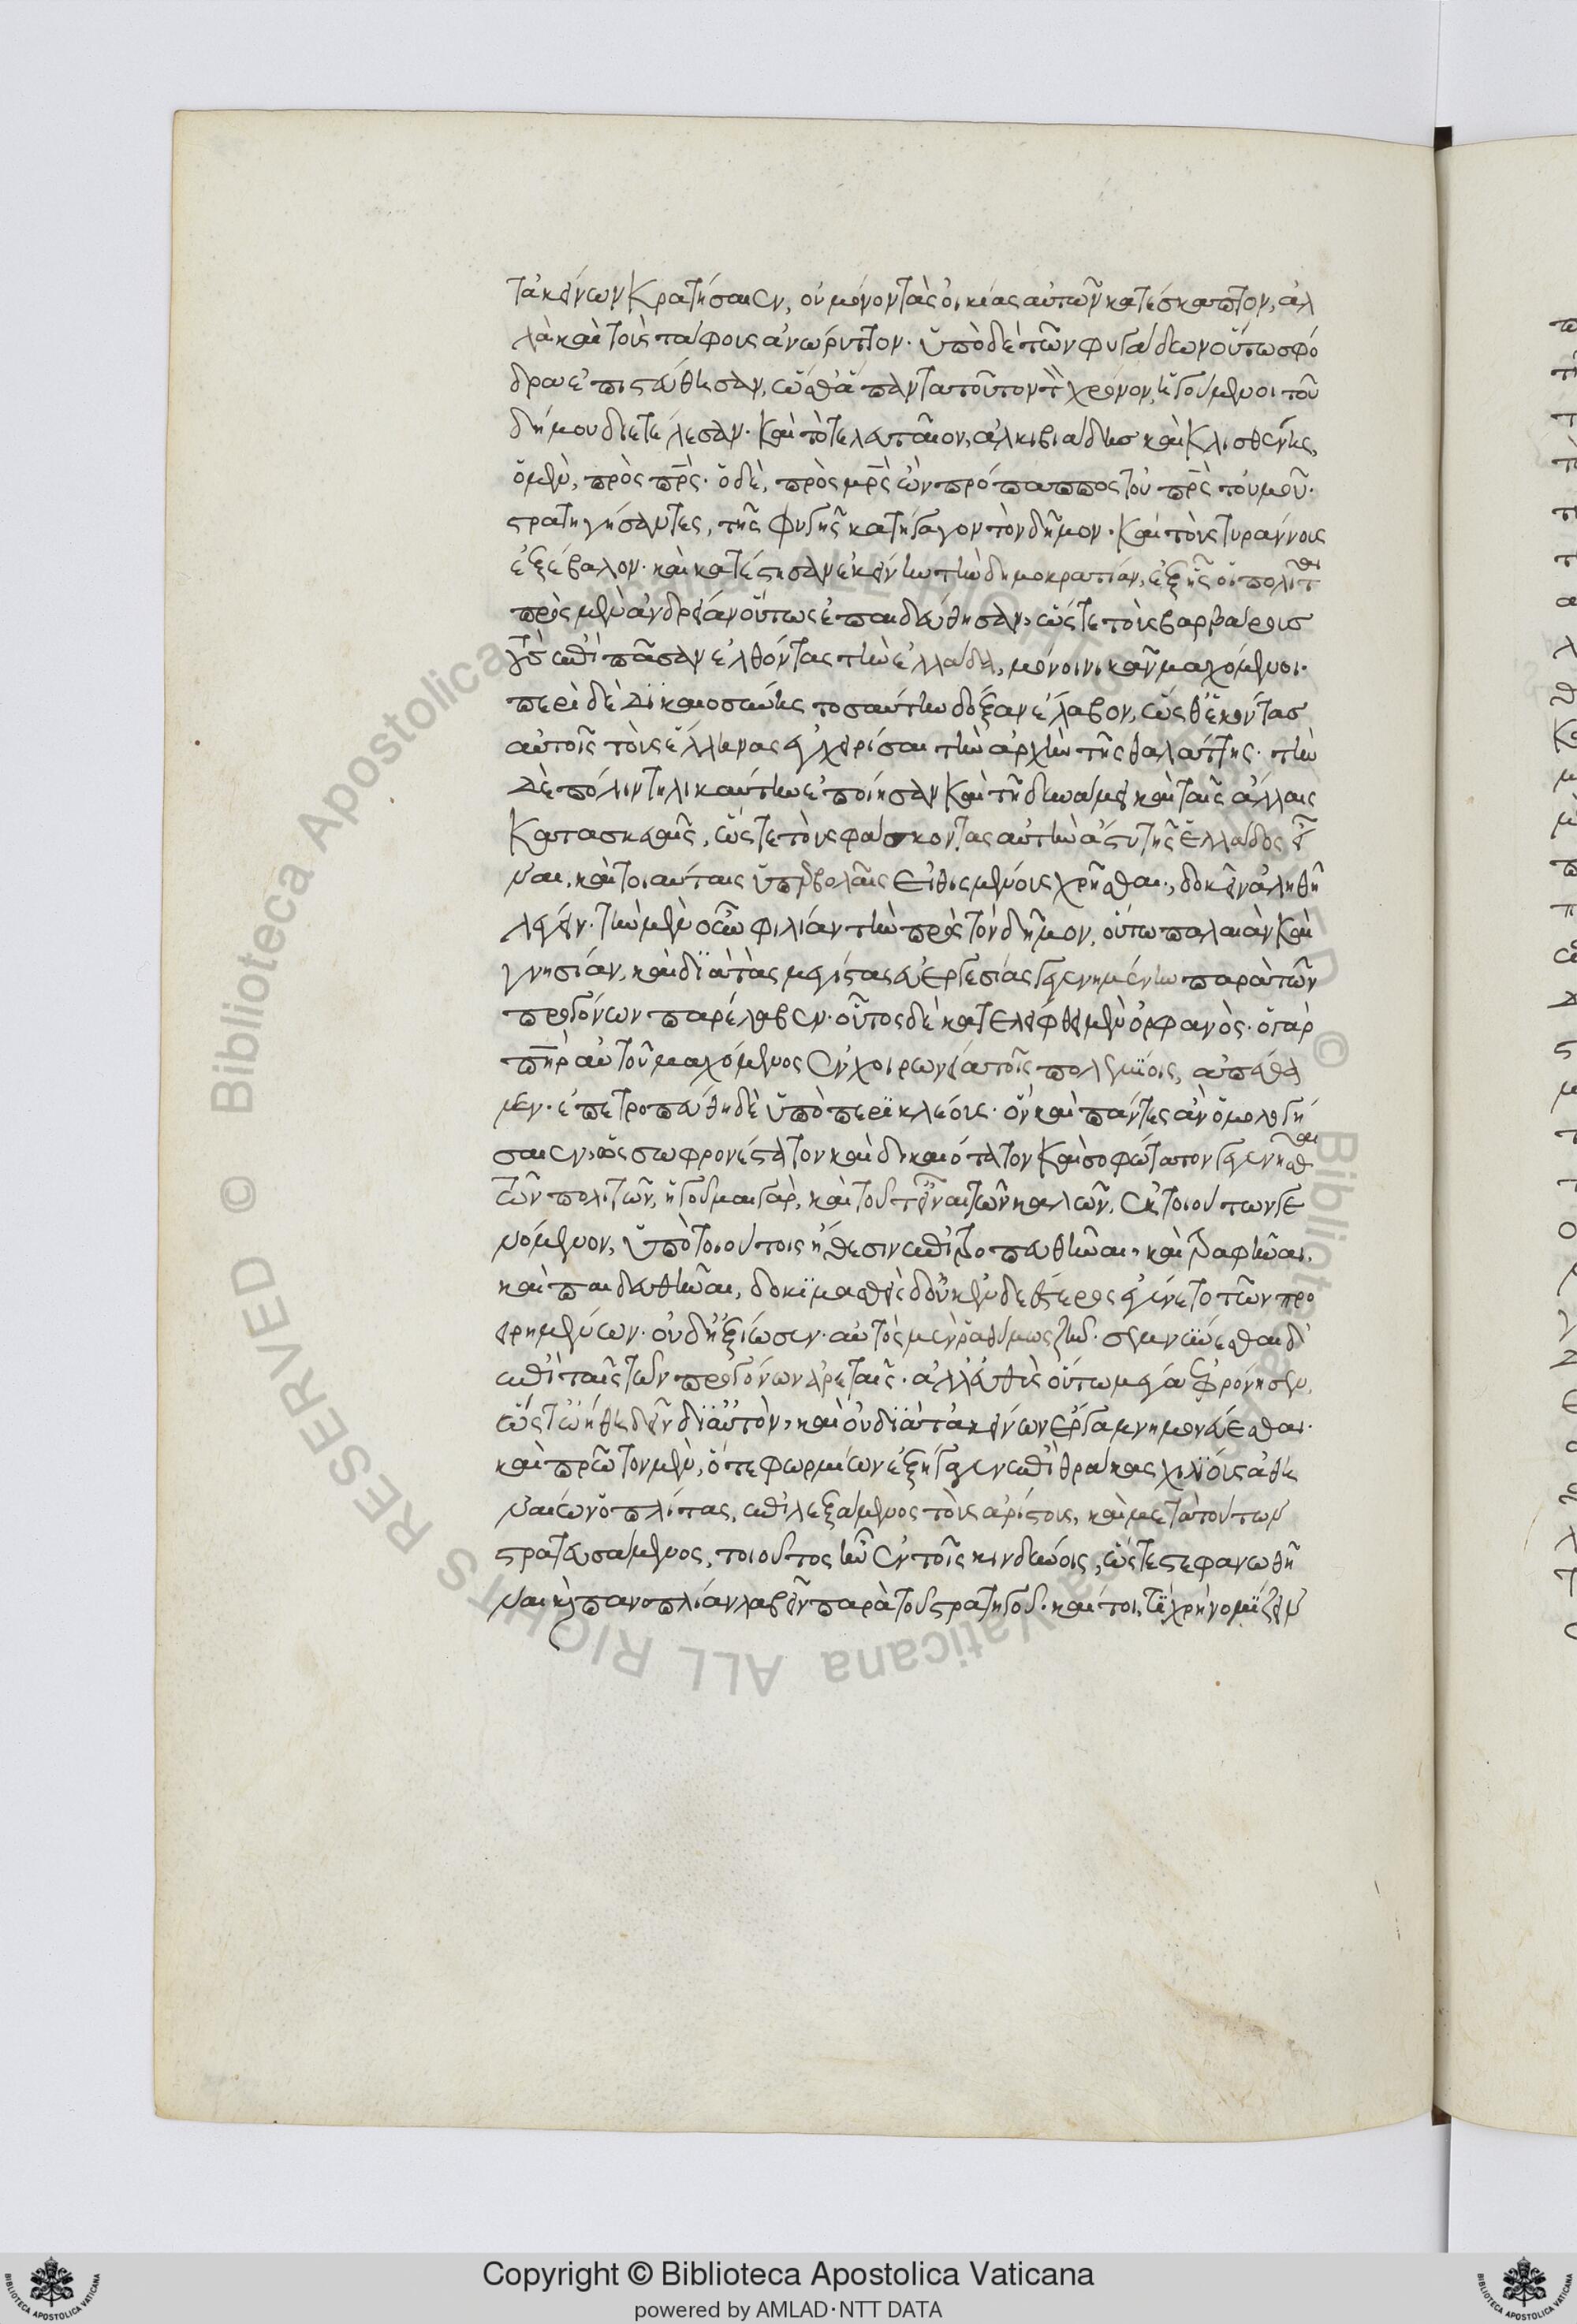 τἀκείνων κρατήσαιεν, οὐ μόνον τὰς οἰκίας αὐτῶν κατέσκαπτον, ἀλ
λὰ καὶ τοὺς τάφους ἀνώρυττον. ὑπὸ δὲ τῶν φυγάδων οὕτω σφό
δρα ἐπιστεύθησαν, ὥσθ' ἅπαντα τοῦτον τὸν χρόνον, ἡγούμενοι τοῦ
δήμου διετέλεσαν. καὶ τὸ τελευταῖον, ἀλκιβιάδης καὶ κλισθένης,
ὁ μὲν, πρὸς πρς. ὁ δὲ, πρὸς μρς ὢν πρόπαππος τοῦ πρς τοὐμοῦ.
στρατηγήσαντες, τῆς φυγῆς κατήγαγον τὸν δῆμον. καὶ τοὺς τυράννους
ἐξέβαλον. καὶ κατέστησαν ἐκείνην τὴν δημοκρατίαν, ἐξ ἧς οἱ πολῖται
πρὸς μὲν ἀνδρείαν οὕτως ἐπαιδεύθησαν, ὥστε τοὺς βαρβάρους
τοὺς ἐπὶ πᾶσαν ἐλθόντας τὴν ἑλλάδα, μόνοι νικᾶν μαχόμενοι.
περὶ δὲ δικαιοσύνης τοσαύτην δόξαν ἔλαβον, ὥσθ' ἑκόντας
αὐτοῖς τοὺς ἕλληνας ἐγχειρίσαι τὴν ἀρχὴν τῆς θαλάττης. τὴν
δὲ πόλιν τηλικαύτην ἐποίησαν καὶ τῇ δυνάμει καὶ ταῖς ἄλλαις
κατασκευαῖς, ὥστε τοὺς φάσκοντας αὐτὴν ἄστυ τῆς ἑλλάδος εἶ
ναι, καὶ τοιαύταις ὑπερβολαῖς εἰθισμένους χρῆσθαι, δοκεῖν ἀληθῆ
λέγειν. τὴν μὲν οὖν φιλίαν τὴν πρὸς τὸν δῆμον, οὕτω παλαιὰν καὶ
γνησίαν, καὶ διὰ τὰς μεγίστας εὐεργεσίας γεγενημένην παρὰ τῶν
προγόνων παρέλαβεν. οὗτος δὲ κατελείφθη μὲν ὀρφανὸς. ὁ γὰρ
πηρ αὐτοῦ μαχόμενος ἐν χοιρωνείᾳ τοῖς πολεμίοις, ἀπέθα
νεν. ἐπετροπεύθη δὲ ὑπὸ περικλέους. ὃν καὶ πάντες ἂν ὁμολογή
σαιεν, ὡς σωφρονέστατον καὶ δικαιότατον καὶ σοφώτατον γενέσθαι
τῶν πολιτῶν, ἡγοῦμαι γὰρ, καὶ τοῦτ' εἶναι τῶν καλῶν, ἐκ τοιούτων γε
νόμενον, ὑπὸ τοιούτοις ἤθεσιν ἐπιτροπευθῆναι, καὶ τραφῆναι,
καὶ παιδευθῆναι, δοκιμασθεὶς δ' οὐκ ἐνδεέστερος ἐγένετο τῶν προ
ειρημένων. οὐδ' ἠξίωσεν. αὐτὸς μὲν ῥαθύμως ζῆν. σεμνύνεσθαι δ'
ἐπὶ ταῖς τῶν προγόνων ἀρεταῖς. ἀλλ' εὐθὺς οὕτω μέγα ἐφρόνησεν,
ὥστ' ᾠήθη δεῖν δι' αὑτὸν, καὶ οὐ διὰ τἀκείνων ἔργα μνημονεύεσθαι.
καὶ πρῶτον μὲν, ὅτε φορμίων ἐξήγαγεν ἐπὶ θράκας χιλίους ἀθη
ναίων ὁπλίτας, ἐπιλεξάμενος τοὺς ἀρίστους, καὶ μετὰ τούτων
στρατευσάμενος, τοιοῦτος ἦν ἐν τοῖς κινδύνοις, ὥστε στεφανωθῆ
ναι κ πανοπλίαν λαβεῖν παρὰ τοῦ στρατηγοῦ. καίτοι, τί χρὴ νομίζειν
Copyright © Biblioteca Apostolica Vaticana
powered by AMLAD·NTT DATA